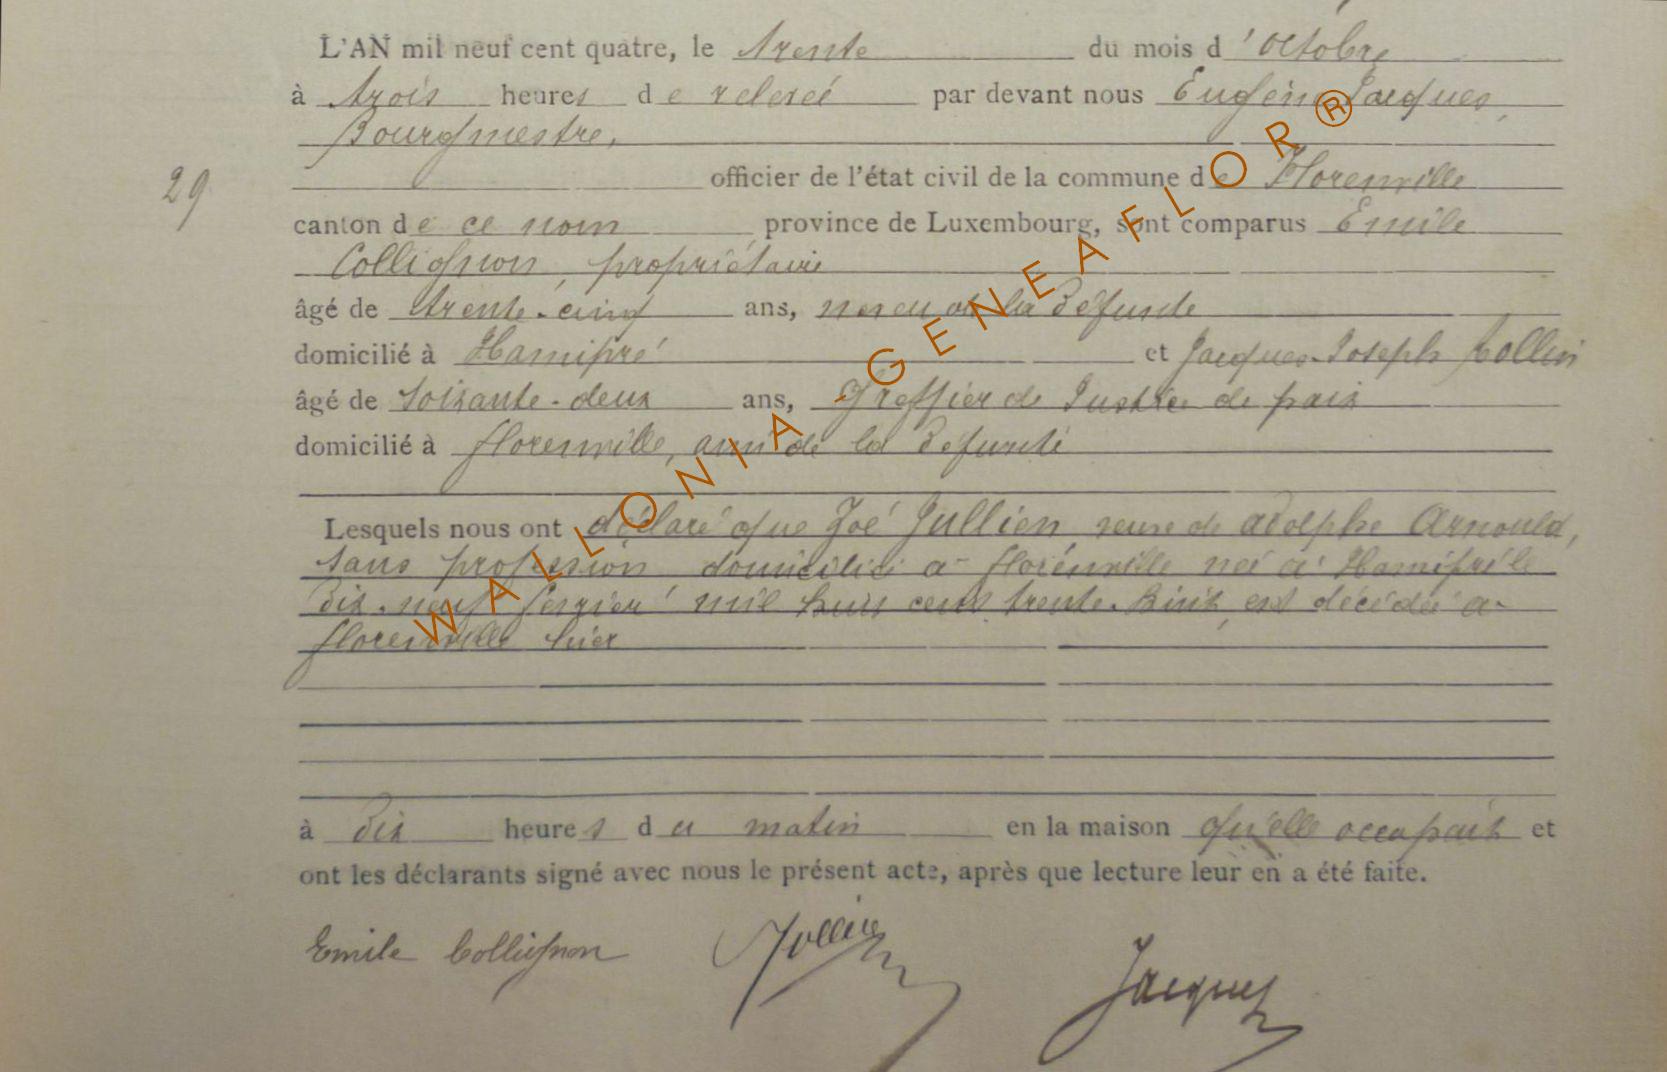 L'AN mil neuf cent quatre, le trente du mois d'octobre
à trois heures de relevé par devant nous Eugène Jacques,
Bourgmestre,
29
officier de l'état civil de la commune de Florenville
canton de ce nom province de Luxembourg, sont comparus Emile
Collignon, propriétaire
âgé de trente-cinq ans, neveu de la défunte
domicilié à Hamipré et Jacques-Joseph Collin
âgé de soixante-deux ans, greffier de Justice de paix
domicilié à florenville, ami de la défunte
Lesquels nous ont déclaré que Zoé Jullien, veuve de adolphe Arnould,
sans profession domiciliée à florenville née à Hamipré le
dix-neuf février mil huit cent trente-huit, est décédée à
florenville hier
à dix heures du matin en la maison qu'elle occupait et
ont les déclarants signé avec nous le présent acte, après que lecture leur en a été faite.
Emile Collignon Jacques
WALLONIA-GENEAFLOR®